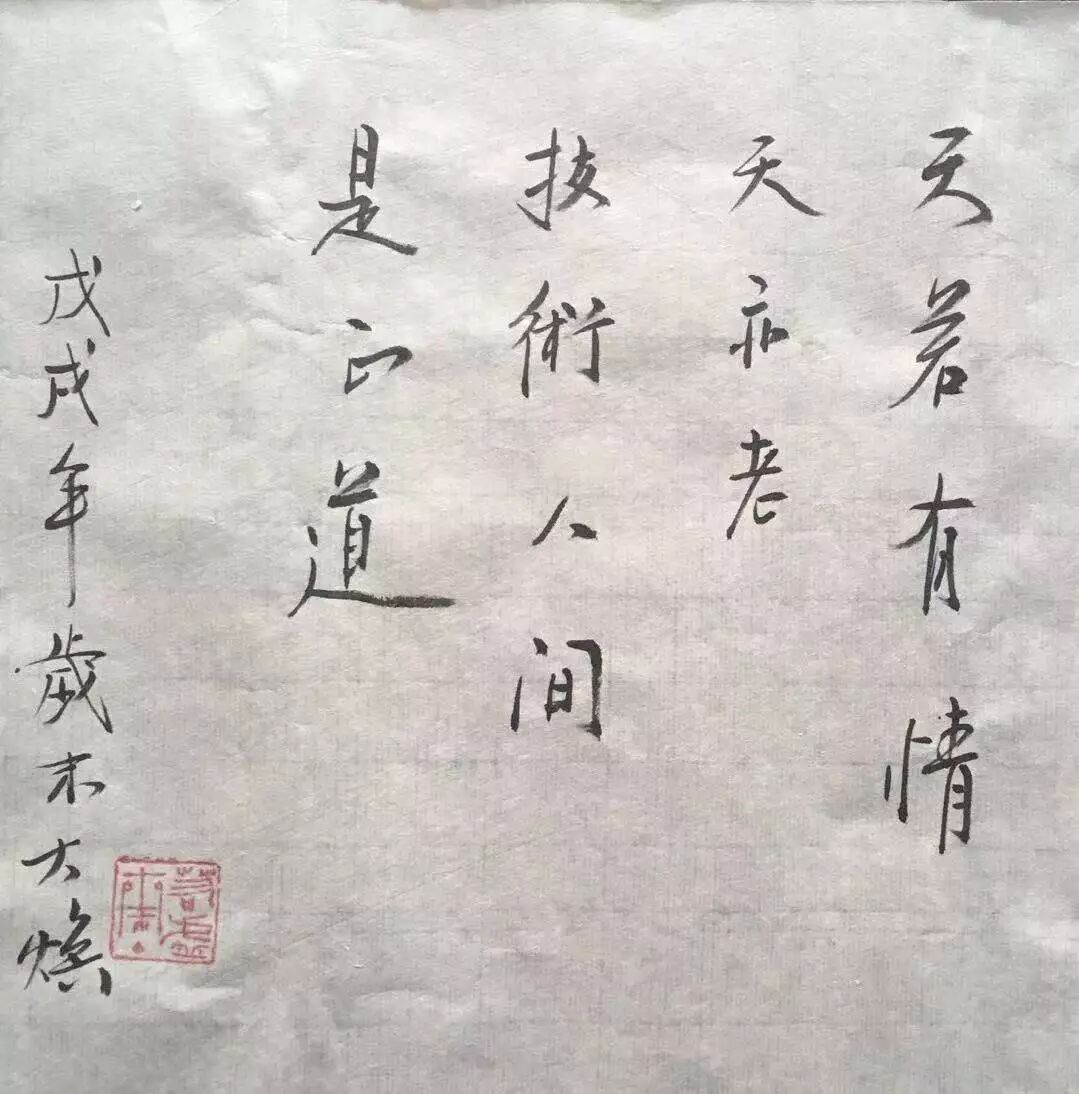 天若有情
天亦老
技術人间
是正道
戊戌年歲末大焕